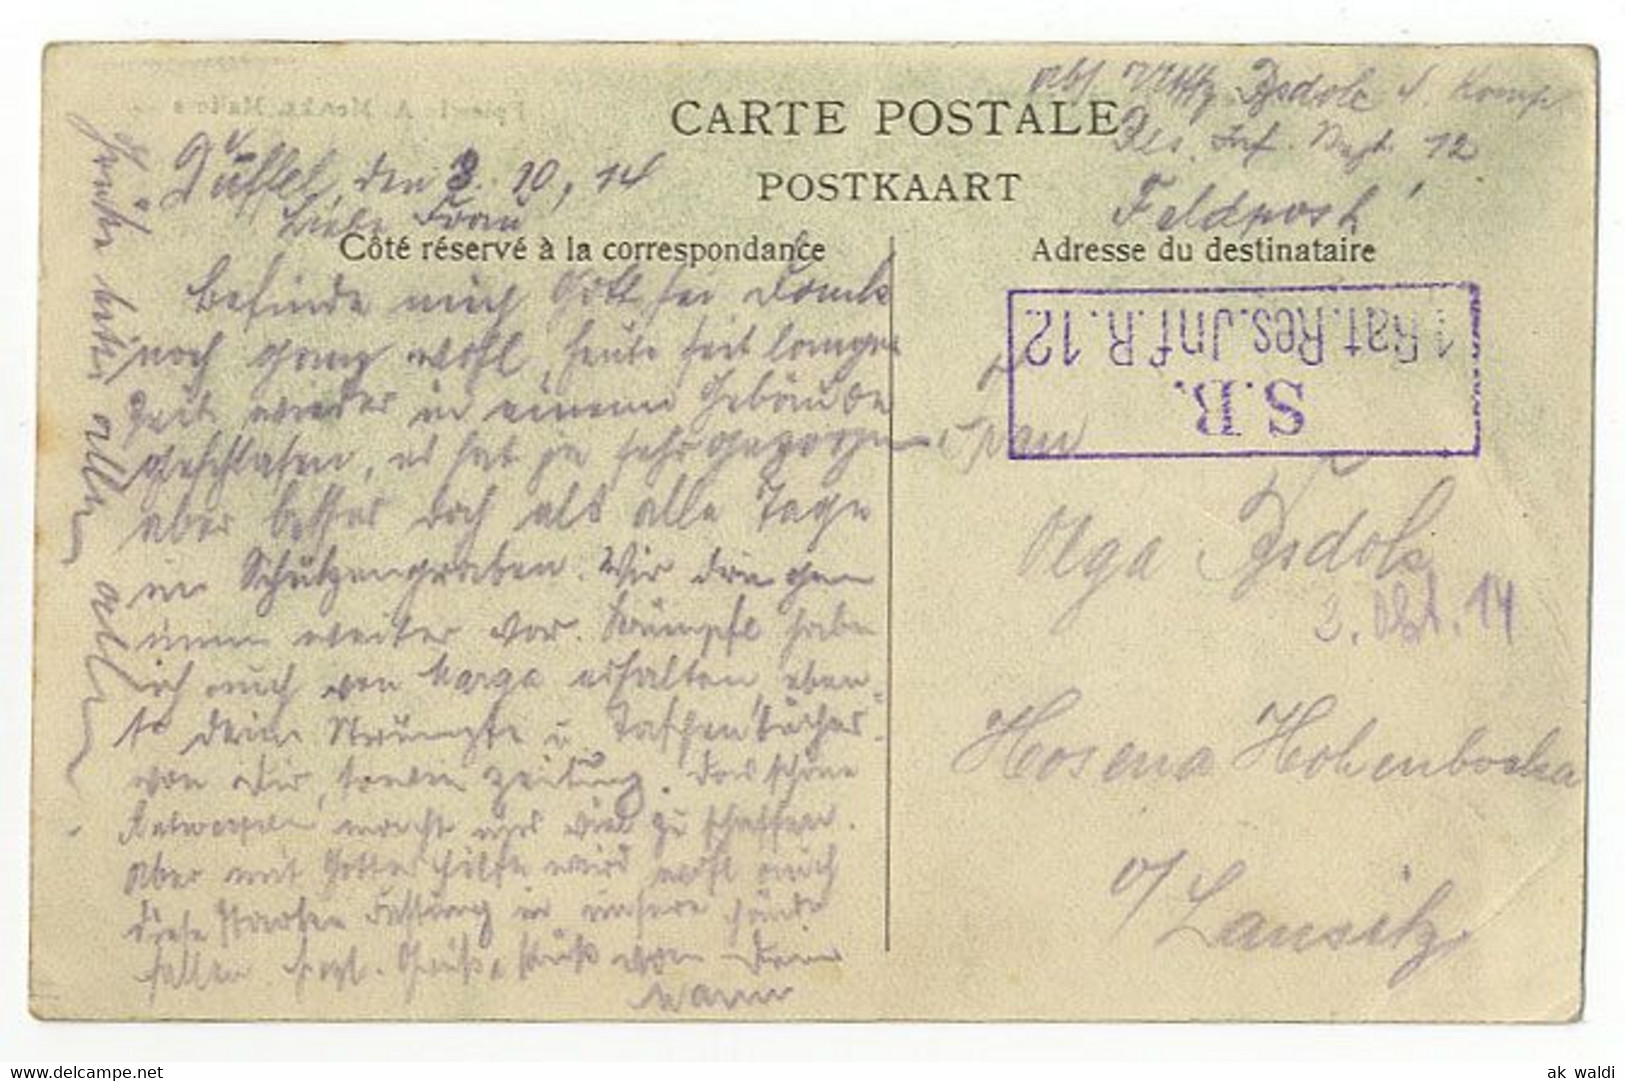 CARTE POSTALE
POSTKAART
Côté réservé à la correspondance
Adresse du destinataire
Düffel, den 3. 10, 14
Liebe Frau
Befinde mich Gott sei Dank
noch ganz wohl, heute seit langer
Zeit wieder in einem Gebäude
geschlafen, es hat ja sehr gezogen
aber besser doch als alle Tage
im Schützengraben. Wir dringen
immer weiter vor. Strümpfe habe
ich auch von Marga erhalten, eben-
so deine Strümpfe u. Taschentücher
von Dir, sowie Zeitung. Das schöne
Antwerpen macht uns viel zu schaffen.
Aber mit Gottes Hilfe wird wohl auch
diese starken Festung in unsere Hände
fallen. Herzl. Gruß u. Kuß von Deinem
Mann
Grüße bitte alle
Abs. Vizefw. 1. Komp
Res. Inf. Regt. 12
Feldpost
S.B.
1 Bat. Res. Inf. R. 12
Frau
Olga
3. Okt. 14
Hosena Hohenbocka
O/Lausitz
ak waldi